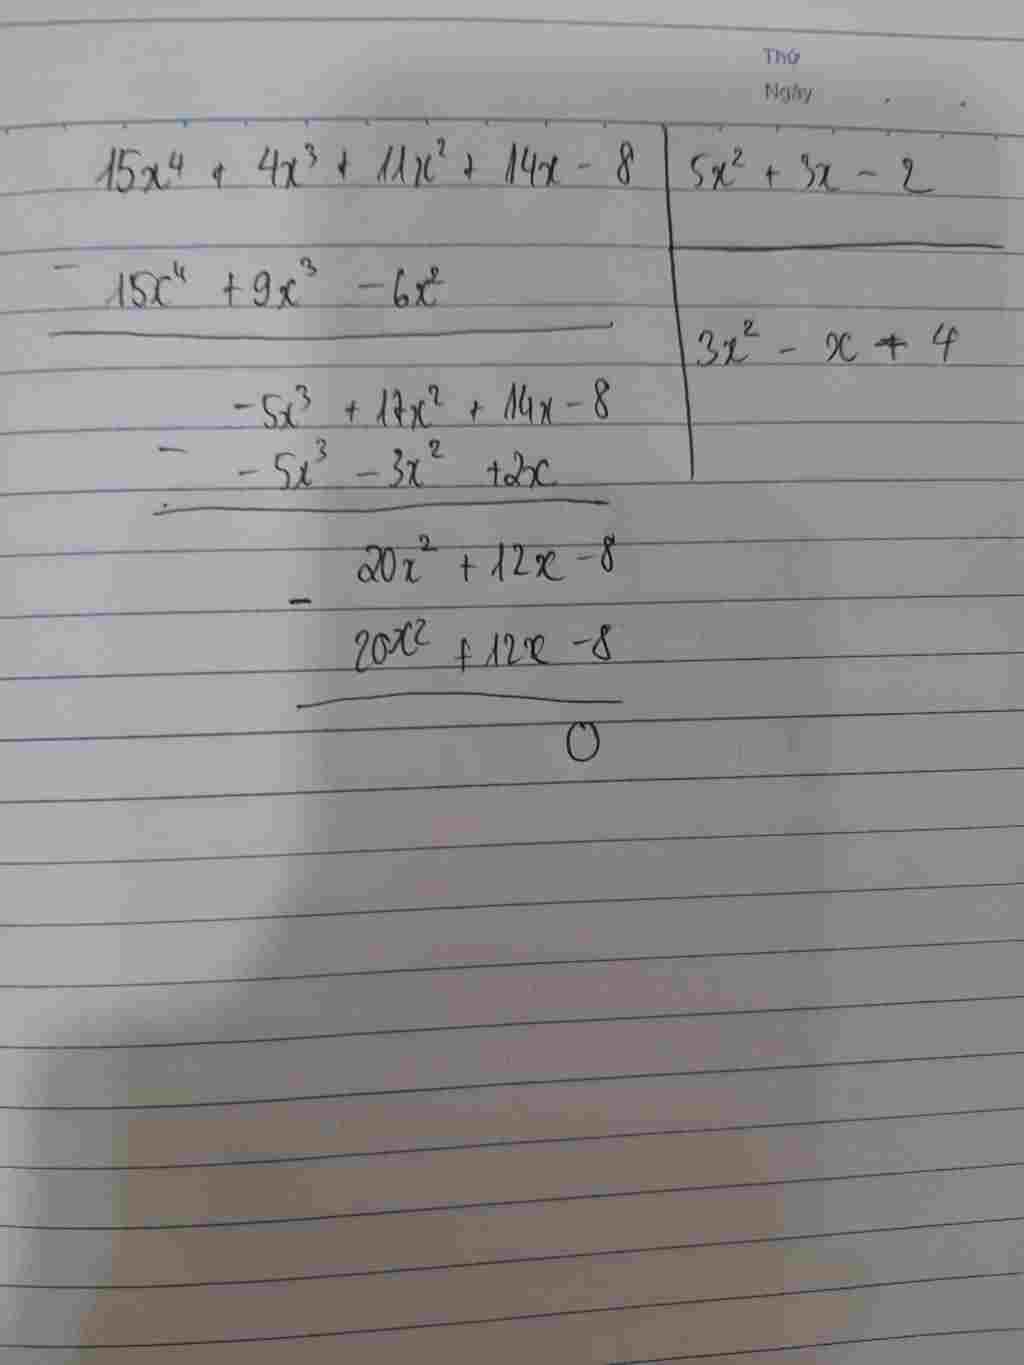 Thứ
Ngày
15x⁴ + 4x³ + 11x² + 14x - 8
5x² + 3x - 2
- 15x⁴ + 9x³ - 6x²
3x² - x + 4
-5x³ + 17x² + 14x - 8
- -5x³ - 3x² + 2x
20x² + 12x - 8
-
20x² + 12x - 8
0